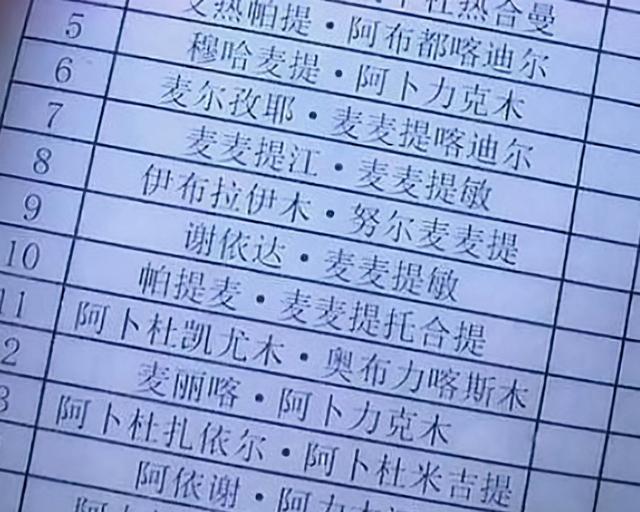 杜热合曼
热帕提·阿布都喀迪尔
5 穆哈麦提·阿卜力克木
6 麦尔孜耶·麦麦提喀迪尔
7 麦麦提江·麦麦提敏
8 伊布拉伊木·努尔麦麦提
9 谢依达·麦麦提敏
10 帕提麦·麦麦提托合提
11 阿卜杜凯尤木·奥布力喀斯木
2 麦丽喀·阿卜力克木
3 阿卜杜扎依尔·阿卜杜米吉提
阿依谢·阿力